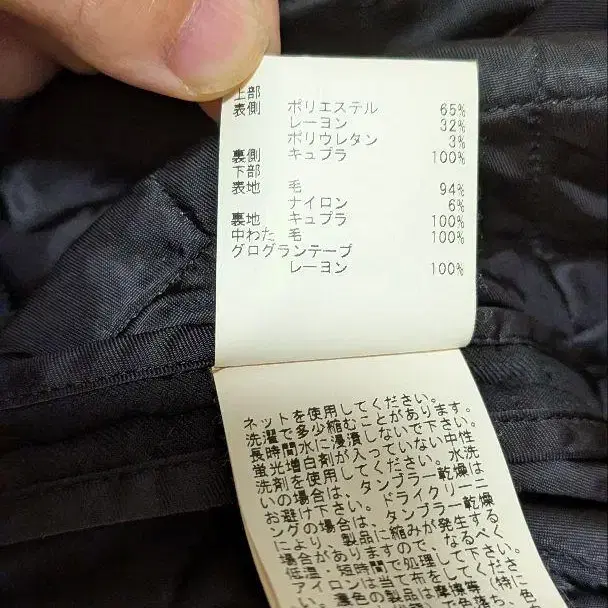 上部
表側 ポリエステル 65%
レーヨン 32%
ポリウレタン 3%
裏側 キュプラ 100%
下部
表地 毛 94%
ナイロン 6%
裏地 キュプラ 100%
中わた 毛 100%
グログランテープ
レーヨン 100%
ネットを使用してください。
洗濯で多少縮むことがあります。
長時間水に浸漬しないで下さい。
蛍光増白剤が入っていない中性
洗剤を使用してください。水洗
いの場合は、タンブラー乾燥は
お避け下さい。ドライクリーニ
ングの場合は、タンブラー乾燥
により、製品に縮みが発生する
場合がありますので、なるべく
低温、短時間で処理して下さい。
アイロンの時は当て布をしてくださ